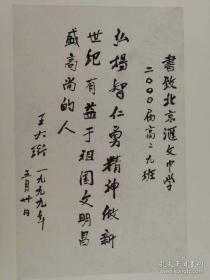 書致北京滙文中学
二〇〇〇届高二九班
弘揚智仁勇精神做新
世纪有益于祖国文明昌
盛高尚的人
王大珩 一九九九年
五月廿日